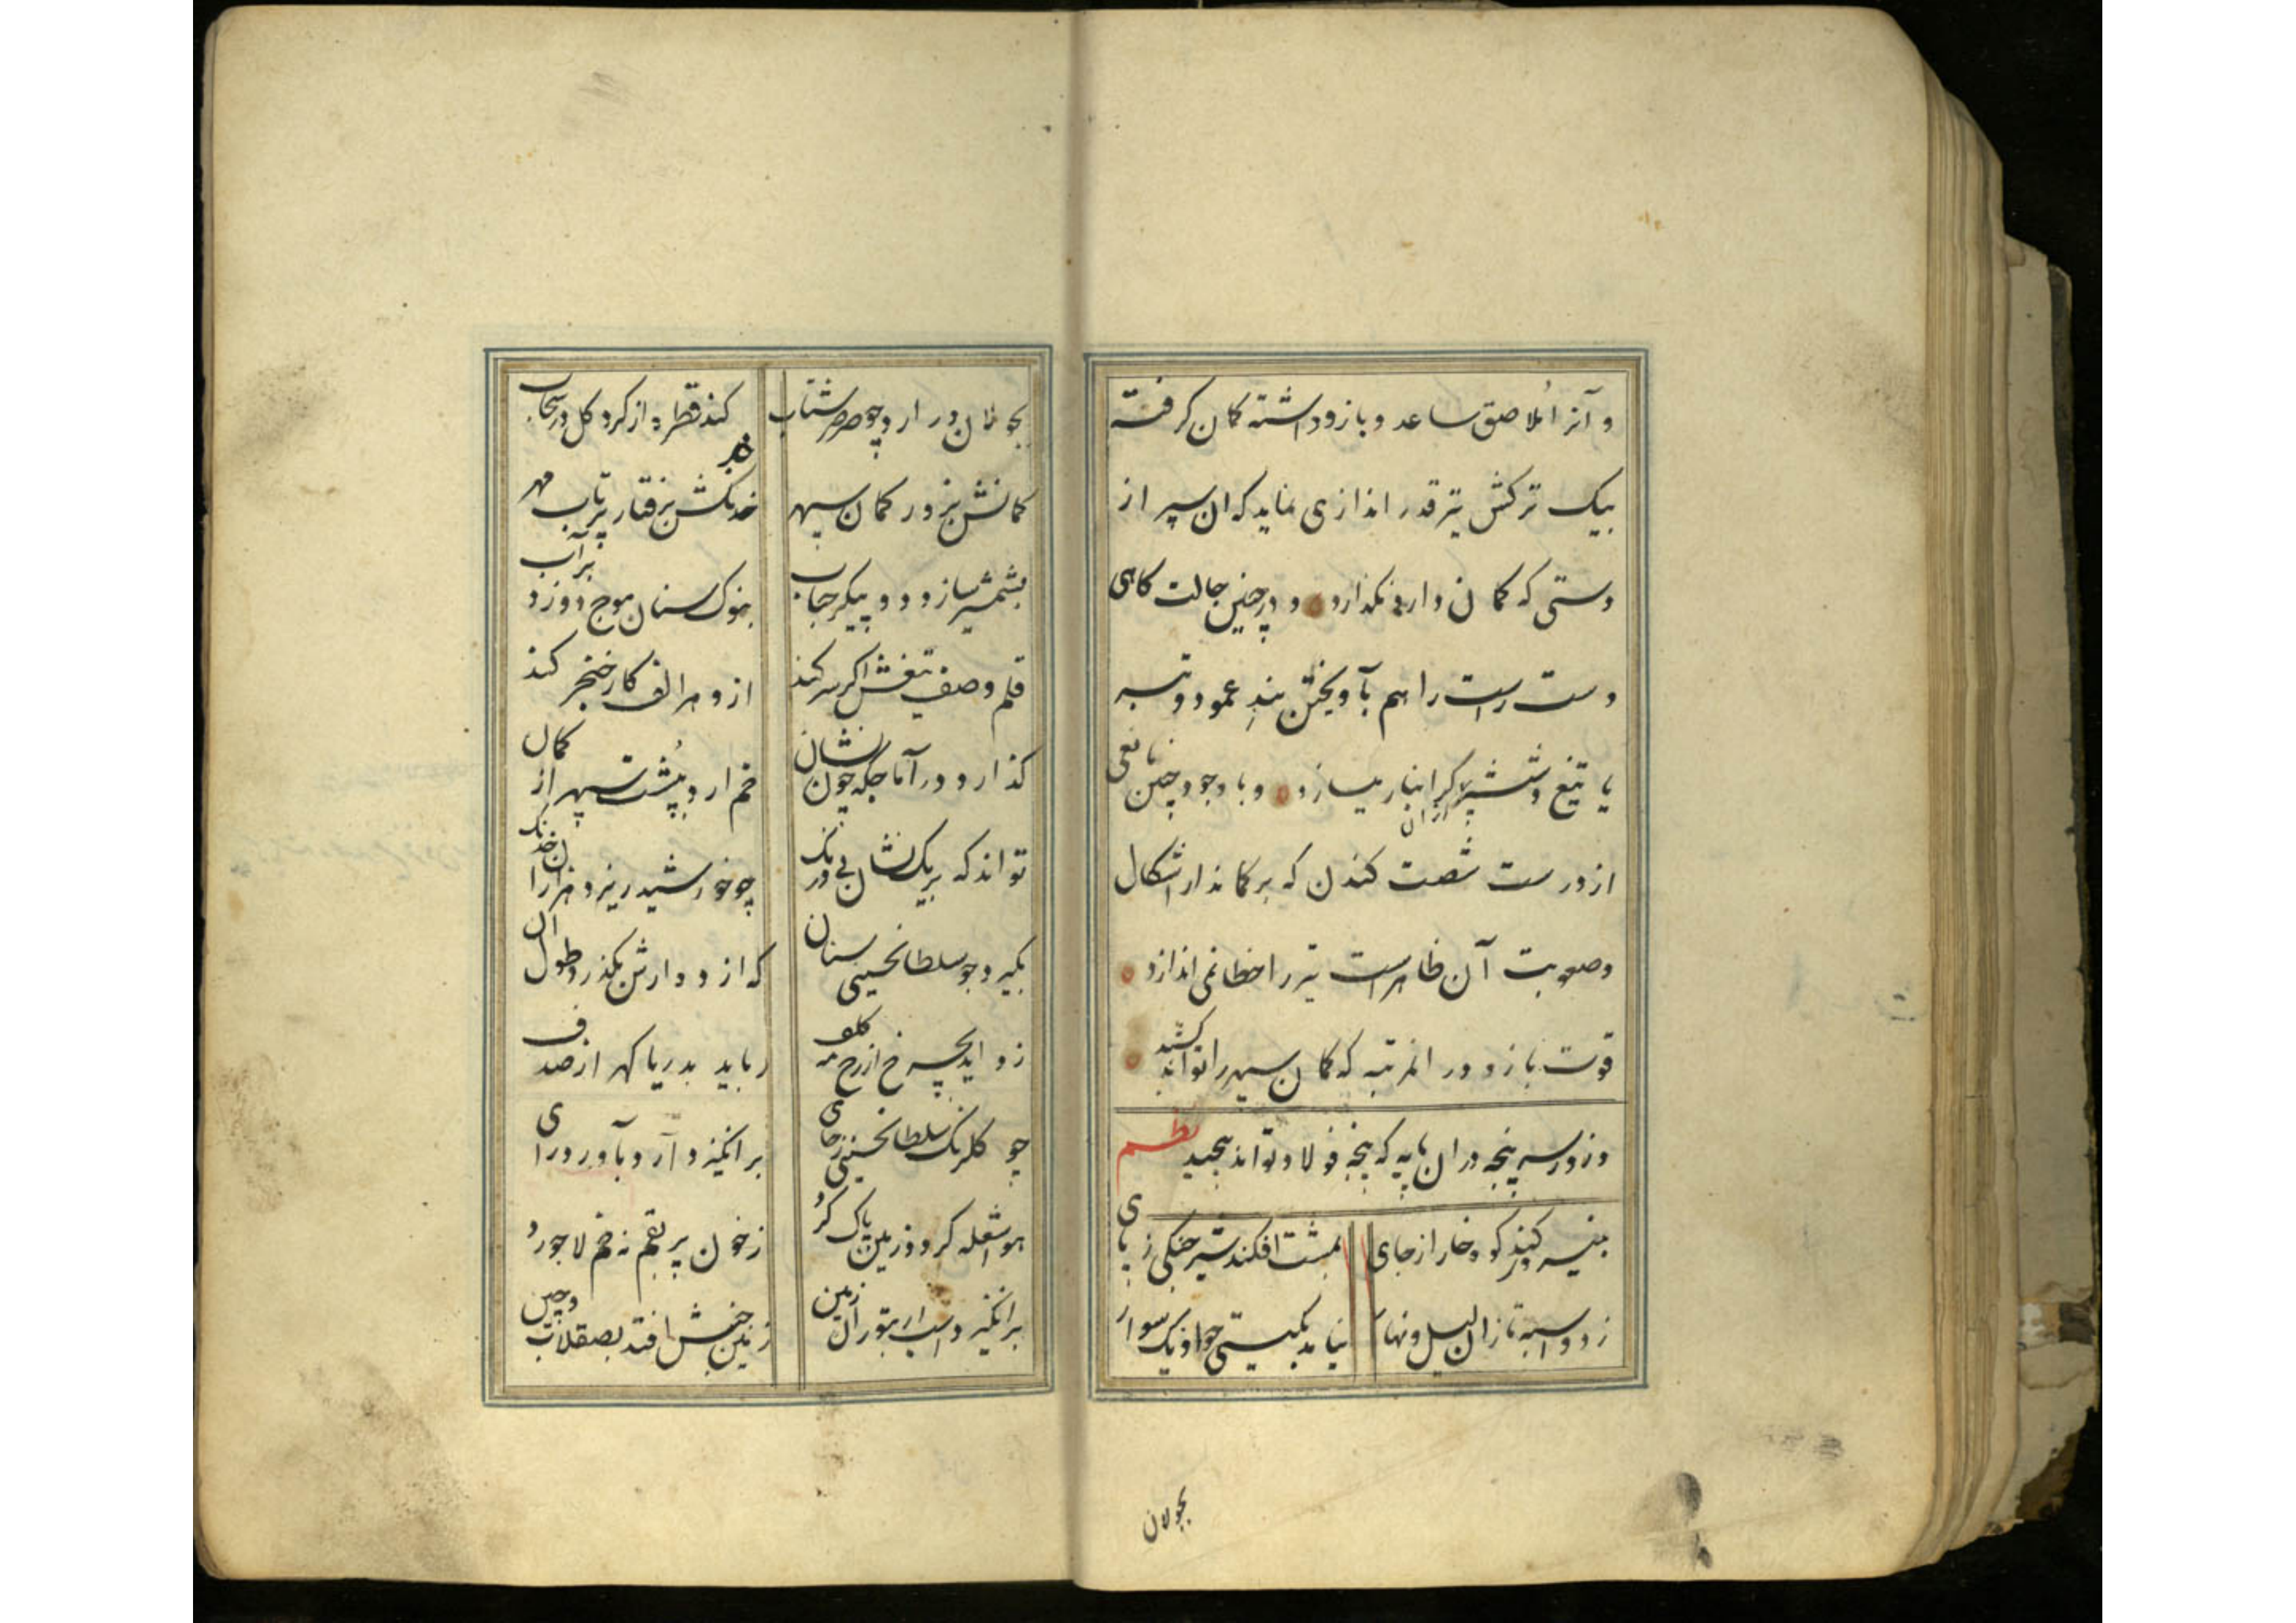 و آنرا مُلاصق ساعد و بازو داشته کمان گرفته
بیک ترکش تیر قدر اندازی نماید که ان سپر از
دستی که کمان دارد نگذارد و در چنین حالت کاهی
دست راست را هم بآویختن بندِ عمود و قبه
یا تیغ و شش پر گرانبار میسازد و با وجود چنین مانعی
از درست شصت کندن که بر کماندار اشکال
و صعوبت آن ظاهر است تیر را خطا نمی اندازد
قوت بازو در انمرتبه که کمان سپهر را تواند کشید
و زور سرپنجه دران پایه که پنجه فولاد تواند پیچید نظم
به نیرو کند کوه خارا ز جای بمشت افکند شیر جنگی ز پای
ز دو اسبه تازان لیل و نهار نیاید بکیستی چو او یک سوار
بجولان
بجولان در ارد چو صرصر شتاب کند قطره از کرد کل در سحاب
کمانش بزور کمان سپهر خدنکش برفتار پرتاب مهر
بشمشیر سازد دو پیکر حباب بنوک سنان موج دوزد بر آب
قلم وصف تیغش اکر سر کند ازو هر الف کار خنجر کند
کذارد در آماجکه چون نشان خم ارد بپُشت سپهر از کمان
تواند که بر یک نشان بی درنک چو خورشید ریزد هزاران خدنک
بکیرد چو سلطانحسینی سنان که از دو وارش بگذرد طول ان
زداید بچرخ از رخ مه کلف رباید بدریا کهر از صدف
چو کلرنک سلطانحسینی ز جای برانکیزد آرد بآورد رای
هوا شعله کردد زمین پاک کرد ز خون پر بقم نه خم لاجورد
برانکیزد اسب ار بتوران زمین زمین جنبش افتد بصقلاب و چین